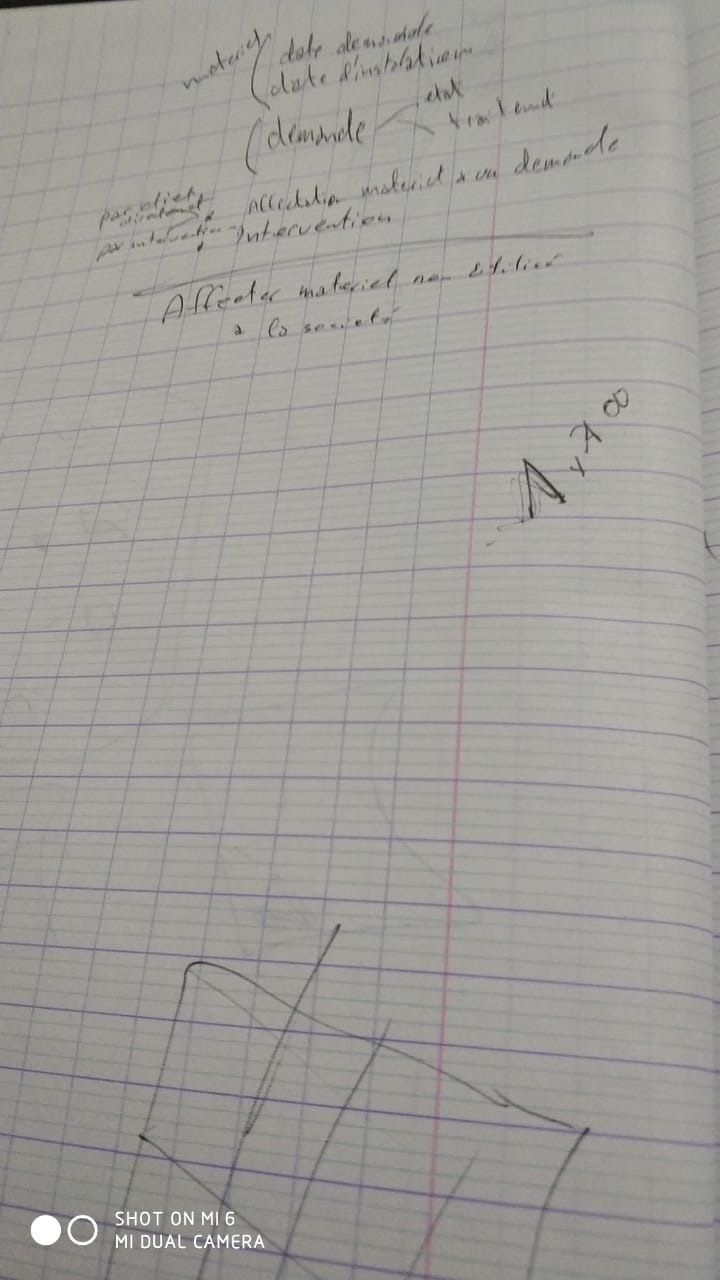 materiel
date demande
date d'instalation
demande
etat
traitement
par client
directement
par intervention
Affectation materiel a un demande
intervention
Affecter materiel non utiliser
a la societé
SHOT ON MI 6
MI DUAL CAMERA